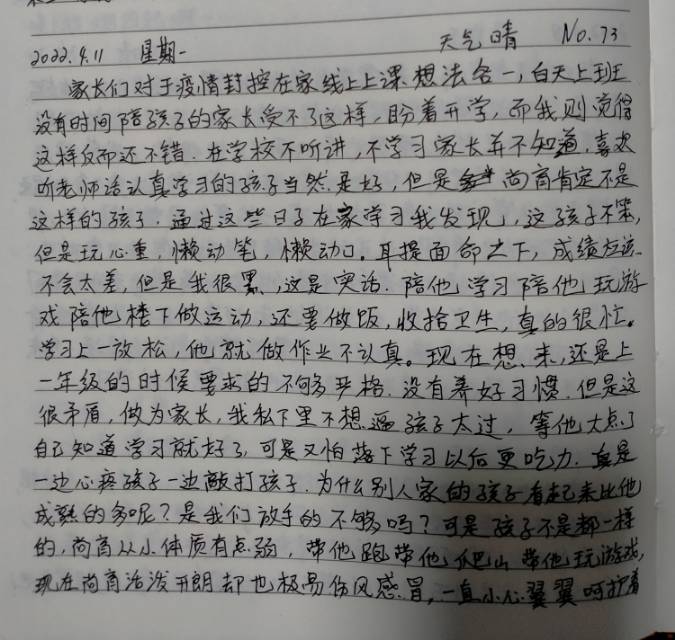 2022.4.11 星期一 天气晴 No.73
家长们对于疫情封控在家线上上课想法各一,白天上班
没有时间陪孩子的家长受不了这样,盼着开学,而我则觉得
这样反而还不错.在学校不听讲,不学习家长并不知道.喜欢
听老师话认真学习的孩子当然是好,但是尚育肯定不是
这样的孩子.通过这些日子在家学习我发现,这孩子不笨,
但是玩心重,懒动笔,懒动口。耳提面命之下,成绩应该
不会太差,但是我很累,这是实话.陪他学习陪他玩游
戏陪他楼下做运动,还要做饭,收拾卫生,真的很忙。
学习上一放松,他就做作业不认真。现在想来,还是上
一年级的时候要求的不够严格.没有养好习惯.但是这
很矛盾,做为家长,我私下里不想逼孩子太过,等他大点了
自己知道学习就好了,可是又怕落下学习以后更吃力.真是
一边心疼孩子一边敲打孩子.为什么别人家的孩子看起来比他
成熟的多呢?是我们放手的不够吗?可是孩子不是都一样
的,尚育从小体质有点弱,带他跑带他爬山带他玩游戏,
现在尚育活泼开朗却也极易伤风感冒,一直小心翼翼呵护着